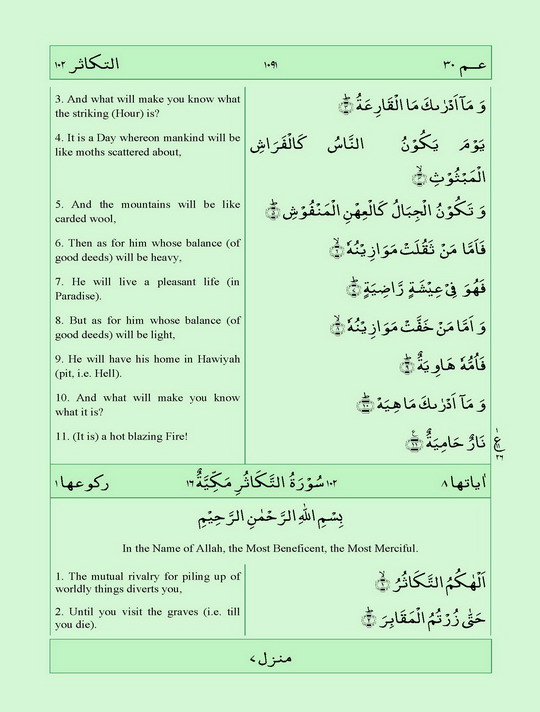 التكاثر ١٠٢ ١٠٩١ عـم ٣٠
3. And what will make you know what
the striking (Hour) is?
وَ مَآ اَدْرٰىكَ مَا الْقَارِعَةُ ؕ﴿۳﴾
4. It is a Day whereon mankind will be
like moths scattered about,
يَوْمَ يَكُوْنُ النَّاسُ كَالْفَرَاشِ
الْمَبْثُوْثِ ۙ﴿۴﴾
5. And the mountains will be like
carded wool,
وَ تَكُوْنُ الْجِبَالُ كَالْعِهْنِ الْمَنْفُوْشِ ؕ﴿۵﴾
6. Then as for him whose balance (of
good deeds) will be heavy,
فَاَمَّا مَنْ ثَقُلَتْ مَوَازِيْنُهٗ ۙ﴿۶﴾
7. He will live a pleasant life (in
Paradise).
فَهُوَ فِيْ عِيْشَةٍ رَّاضِيَةٍ ؕ﴿۷﴾
8. But as for him whose balance (of
good deeds) will be light,
وَ اَمَّا مَنْ خَفَّتْ مَوَازِيْنُهٗ ۙ﴿۸﴾
9. He will have his home in Hawiyah
(pit, i.e. Hell).
فَاُمُّهٗ هَاوِيَةٌ ؕ﴿۹﴾
10. And what will make you know
what it is?
وَ مَآ اَدْرٰىكَ مَا هِيَهْ ؕ﴿۱۰﴾
11. (It is) a hot blazing Fire!
نَارٌ حَامِيَةٌ ﴿۱۱﴾
ع ٢٦
اٰياتها ٨ ١٠٢ سُوْرَةُ التَّكَاثُرِ مَكِّيَّةٌ ١٦ ركوعها ١
بِسْمِ اللهِ الرَّحْمٰنِ الرَّحِيْمِ
In the Name of Allah, the Most Beneficent, the Most Merciful.
1. The mutual rivalry for piling up of
worldly things diverts you,
اَلْهٰىكُمُ التَّكَاثُرُ ۙ﴿۱﴾
2. Until you visit the graves (i.e. till
you die).
حَتّٰى زُرْتُمُ الْمَقَابِرَ ؕ﴿۲﴾
منزل ٧